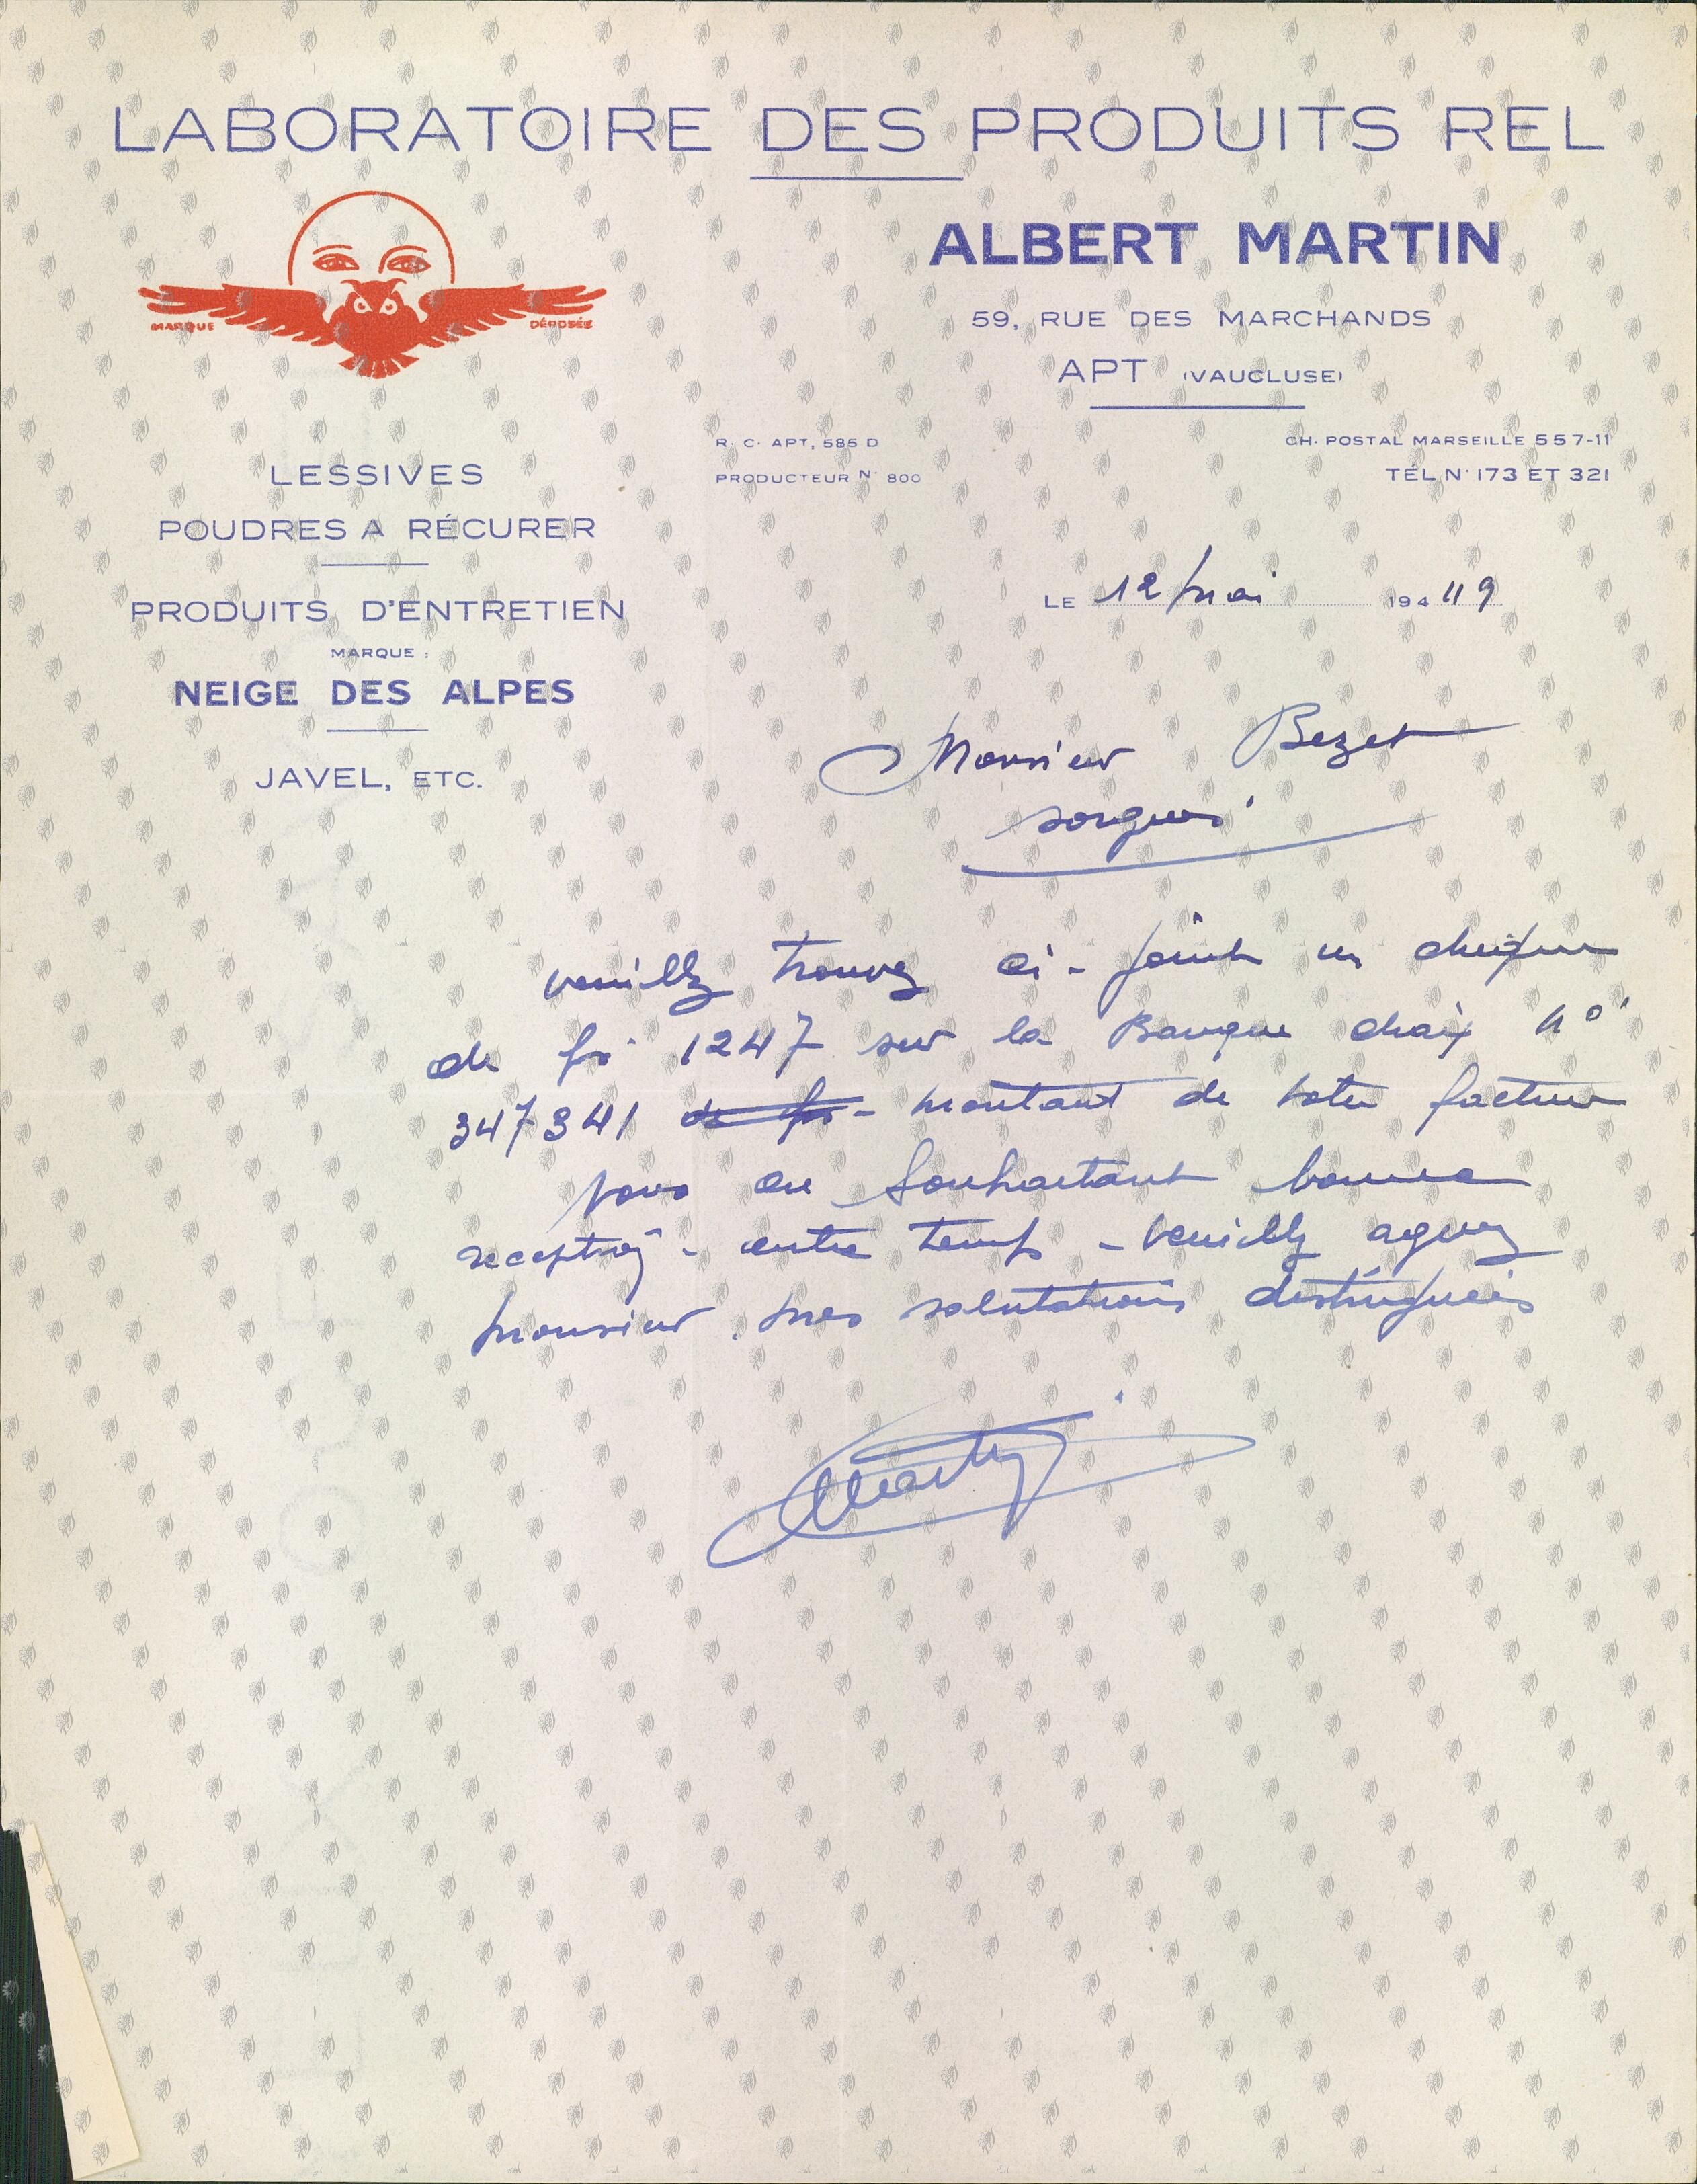 LABORATOIRE DES PRODUITS REL
MARQUE DÉPOSÉE
ALBERT MARTIN
59, RUE DES MARCHANDS
APT (VAUCLUSE)
R. C. APT, 585 D
PRODUCTEUR N° 800
CH. POSTAL MARSEILLE 557-11
TÉL N° 173 ET 321
LESSIVES
POUDRES A RÉCURER
PRODUITS D'ENTRETIEN
MARQUE :
NEIGE DES ALPES
JAVEL, ETC.
LE 12 mai 194 49
Monsieur Bezet
Sorgues
veuillez trouvez ci-joint un chèque
de frs 1247 sur la Banque chaix n°
347341 de frs - montant de votre facture
vous en souhaitant bonne
reception - entre temps - veuillez agreez
monsieur, mes salutations distinguées
Martin